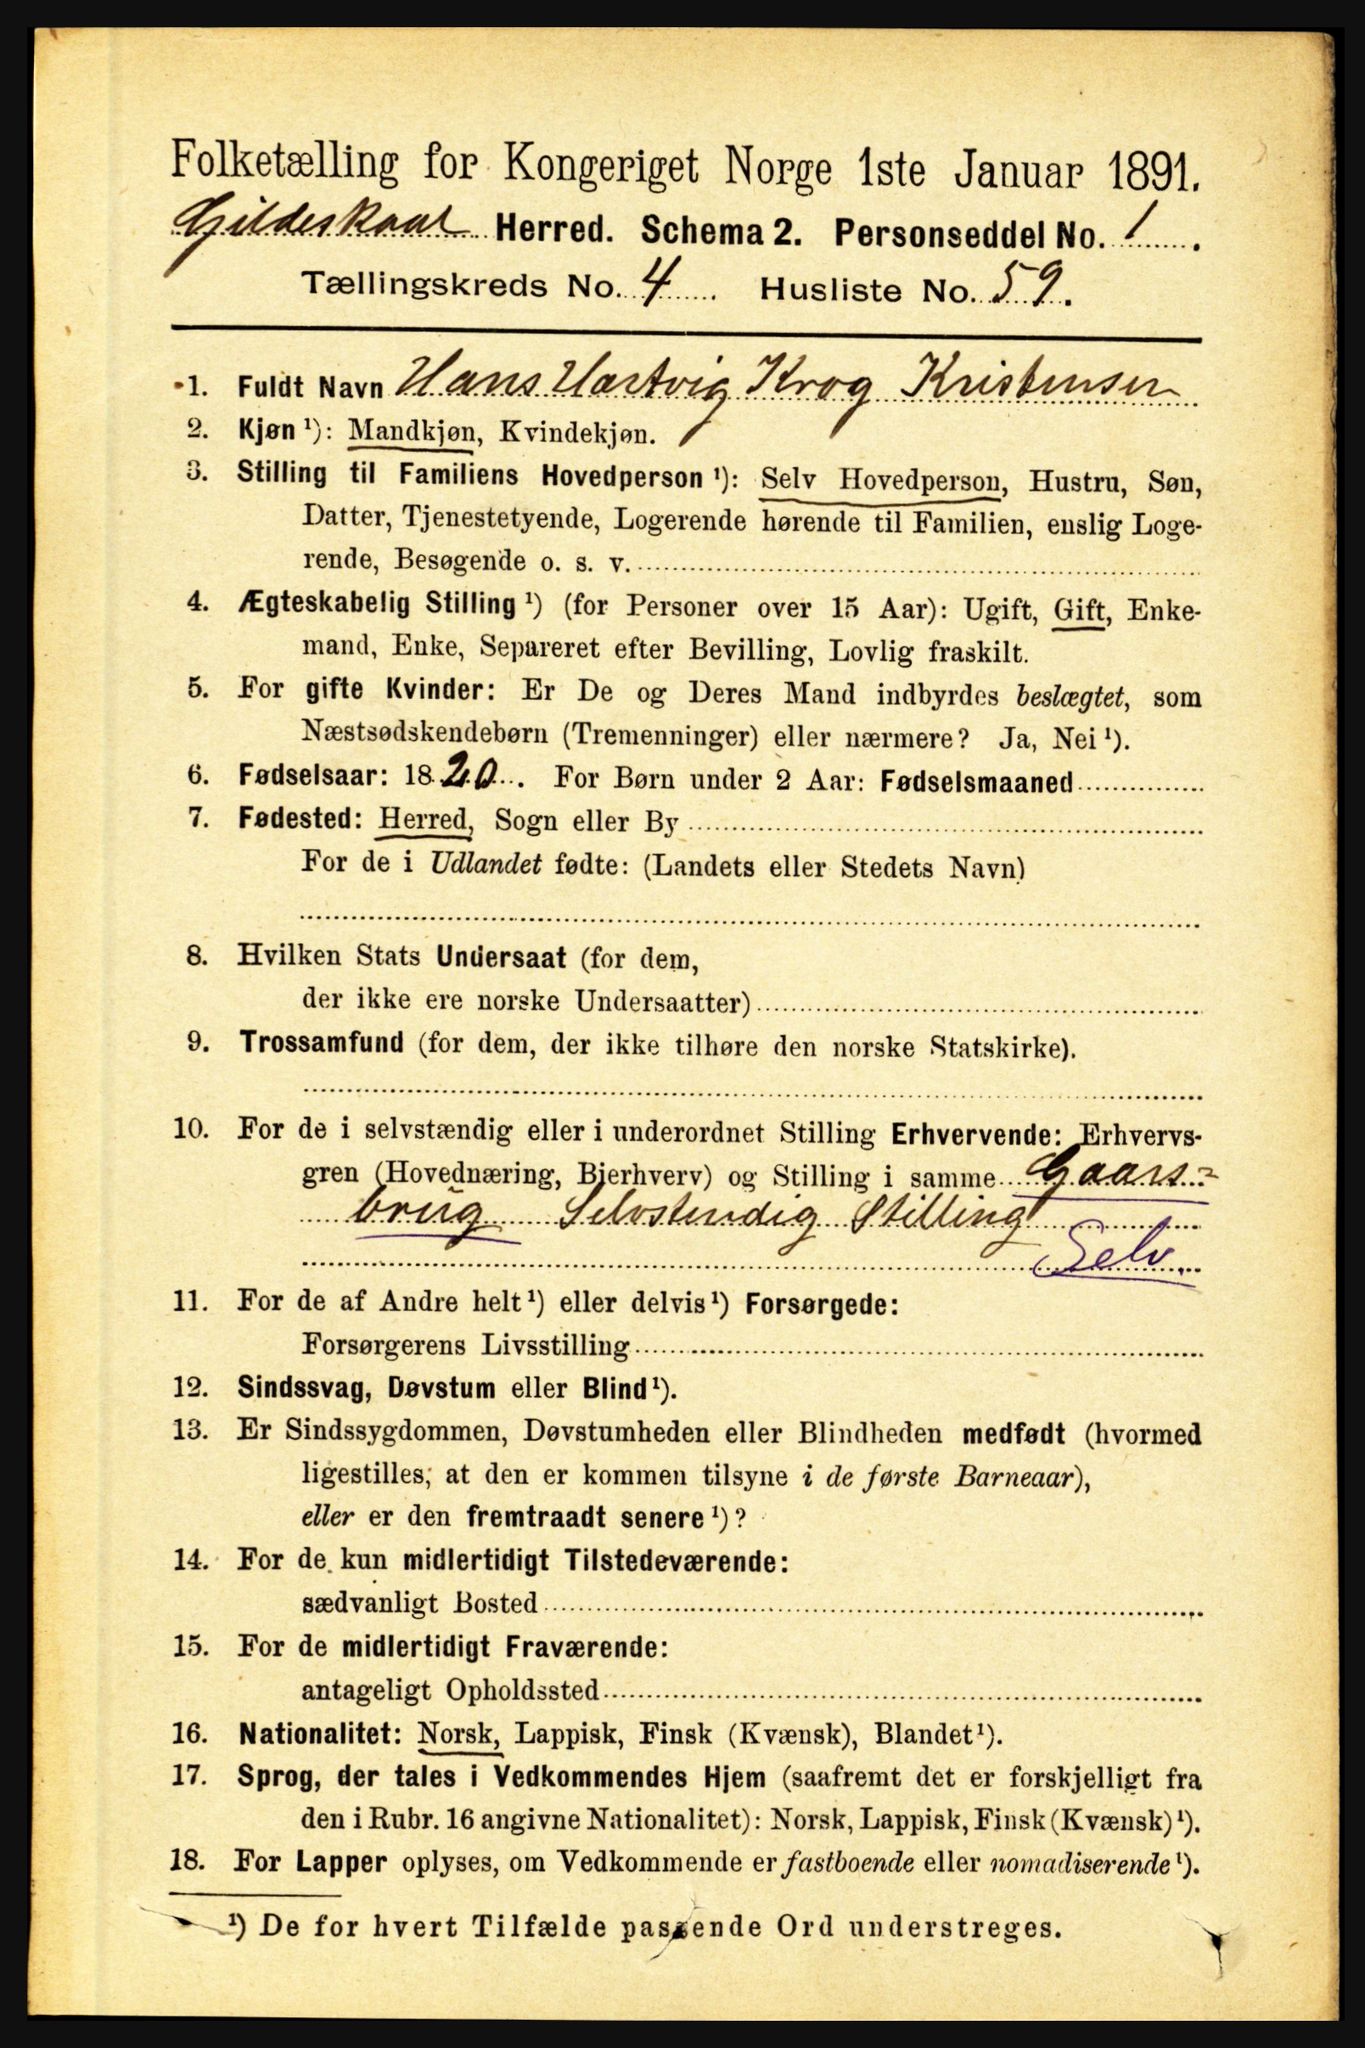 Folketælling for Kongeriget Norge 1ste Januar 1891.
Gildeskaal Herred. Schema 2. Personseddel No. 1.
Tællingskreds No. 4. Husliste No. 59.
1. Fuldt Navn Hans Hartvig Krog Kristensen
2. Kjøn ¹): Mandkjøn, Kvindekjøn.
3. Stilling til Familiens Hovedperson ¹): Selv Hovedperson, Hustru, Søn,
Datter, Tjenestetyende, Logerende hørende til Familien, enslig Loge-
rende, Besøgende o. s. v.
4. Ægteskabelig Stilling ¹) (for Personer over 15 Aar): Ugift, Gift, Enke-
mand, Enke, Separeret efter Bevilling, Lovlig fraskilt.
5. For gifte Kvinder: Er De og Deres Mand indbyrdes beslægtet, som
Næstsødskendebørn (Tremenninger) eller nærmere? Ja, Nei ¹).
6. Fødselsaar: 1820. For Børn under 2 Aar: Fødselsmaaned
7. Fødested: Herred, Sogn eller By
For de i Udlandet fødte: (Landets eller Stedets Navn)
8. Hvilken Stats Undersaat (for dem,
der ikke ere norske Undersaatter)
9. Trossamfund (for dem, der ikke tilhøre den norske Statskirke).
10. For de i selvstændig eller i underordnet Stilling Erhvervende: Erhvervs-
gren (Hovednæring, Bierhverv) og Stilling i samme Gaars=
brug Selvstendig Stilling
Selv.
11. For de af Andre helt ¹) eller delvis ¹) Forsørgede:
Forsørgerens Livsstilling
12. Sindssvag, Døvstum eller Blind ¹).
13. Er Sindssygdommen, Døvstumheden eller Blindheden medfødt (hvormed
ligestilles, at den er kommen tilsyne i de første Barneaar),
eller er den fremtraadt senere ¹)?
14. For de kun midlertidigt Tilstedeværende:
sædvanligt Bosted
15. For de midlertidigt Fraværende:
antageligt Opholdssted
16. Nationalitet: Norsk, Lappisk, Finsk (Kvænsk), Blandet ¹).
17. Sprog, der tales i Vedkommendes Hjem (saafremt det er forskjelligt fra
den i Rubr. 16 angivne Nationalitet): Norsk, Lappisk, Finsk (Kvænsk) ¹).
18. For Lapper oplyses, om Vedkommende er fastboende eller nomadiserende ¹).
¹) De for hvert Tilfælde passende Ord understreges.